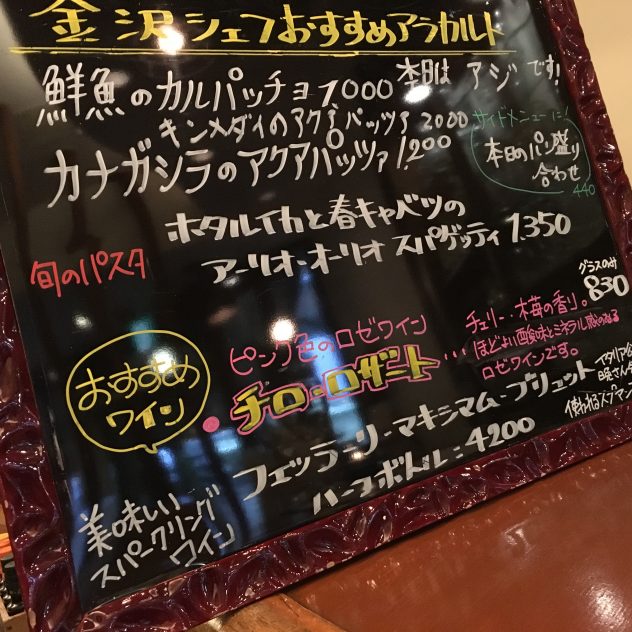 金沢シェフおすすめアラカルト
鮮魚のカルパッチョ 1,000 本日は アジ です!
キンメダイのアクアパッツァ 2000
カナガシラのアクアパッツァ 1,200
サイドメニューに!
本日のパン盛り
合わせ
440
旬のパスタ
ホタルイカと春キャベツの
アーリオ・オーリオ スパゲッティ 1,350
グラスのみ
830
おすすめ
ワイン
ピンク色のロゼワイン
・チロ・ロザート…
チェリー、木苺の香り。
ほどよい酸味とミネラル感のある
ロゼワインです。
美味しい
スパークリング
ワイン
フェッラーリ・マキシマム・ブリュット
ハーフボトル:4200
イタリア
使われるスプマン